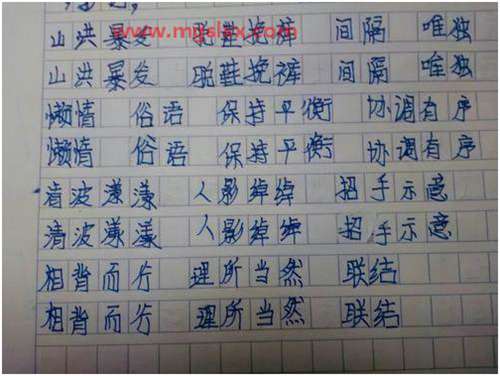 www.mgslsx.com
山洪暴发 脱鞋挽裤 间隔 唯独
山洪暴发 脱鞋挽裤 间隔 唯独
懒惰 俗语 保持平衡 协调有序
懒惰 俗语 保持平衡 协调有序
清波漾漾 人影绰绰 招手示意
清波漾漾 人影绰绰 招手示意
相背而行 理所当然 联结
相背而行 理所当然 联结